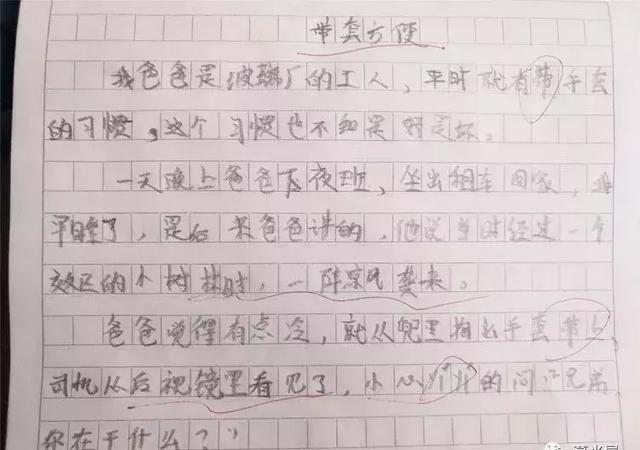 带套方便
我爸爸是玻璃厂的工人，平时就有带手套
的习惯，这个习惯也不知是好是坏。
一天晚上爸爸下夜班，坐出租车回家，我
早睡了，是后来爸爸讲的，他说当时经过一个
效区的小树林时，一阵凉风袭来。
爸爸觉得有点冷，就从兜里掏出手套带上
司机从后视镜里看见了，小心的问“兄弟
你在干什么？”